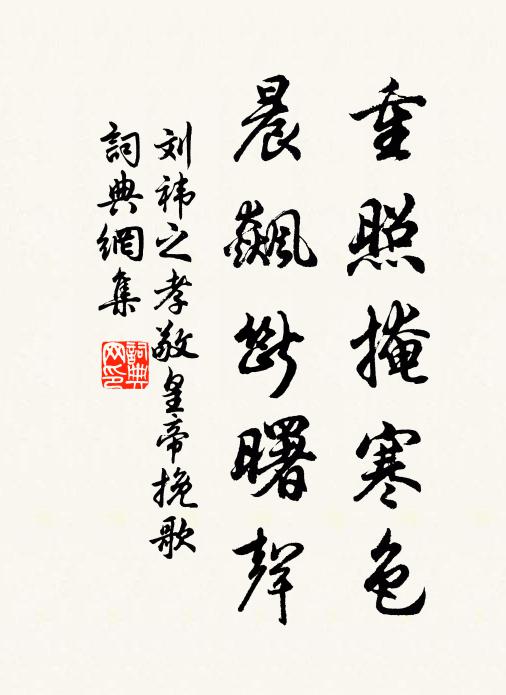 重照掩寒色
晨飙断曙聲
刘祎之孝敬皇帝挽歌
詞典網集
詞典网印